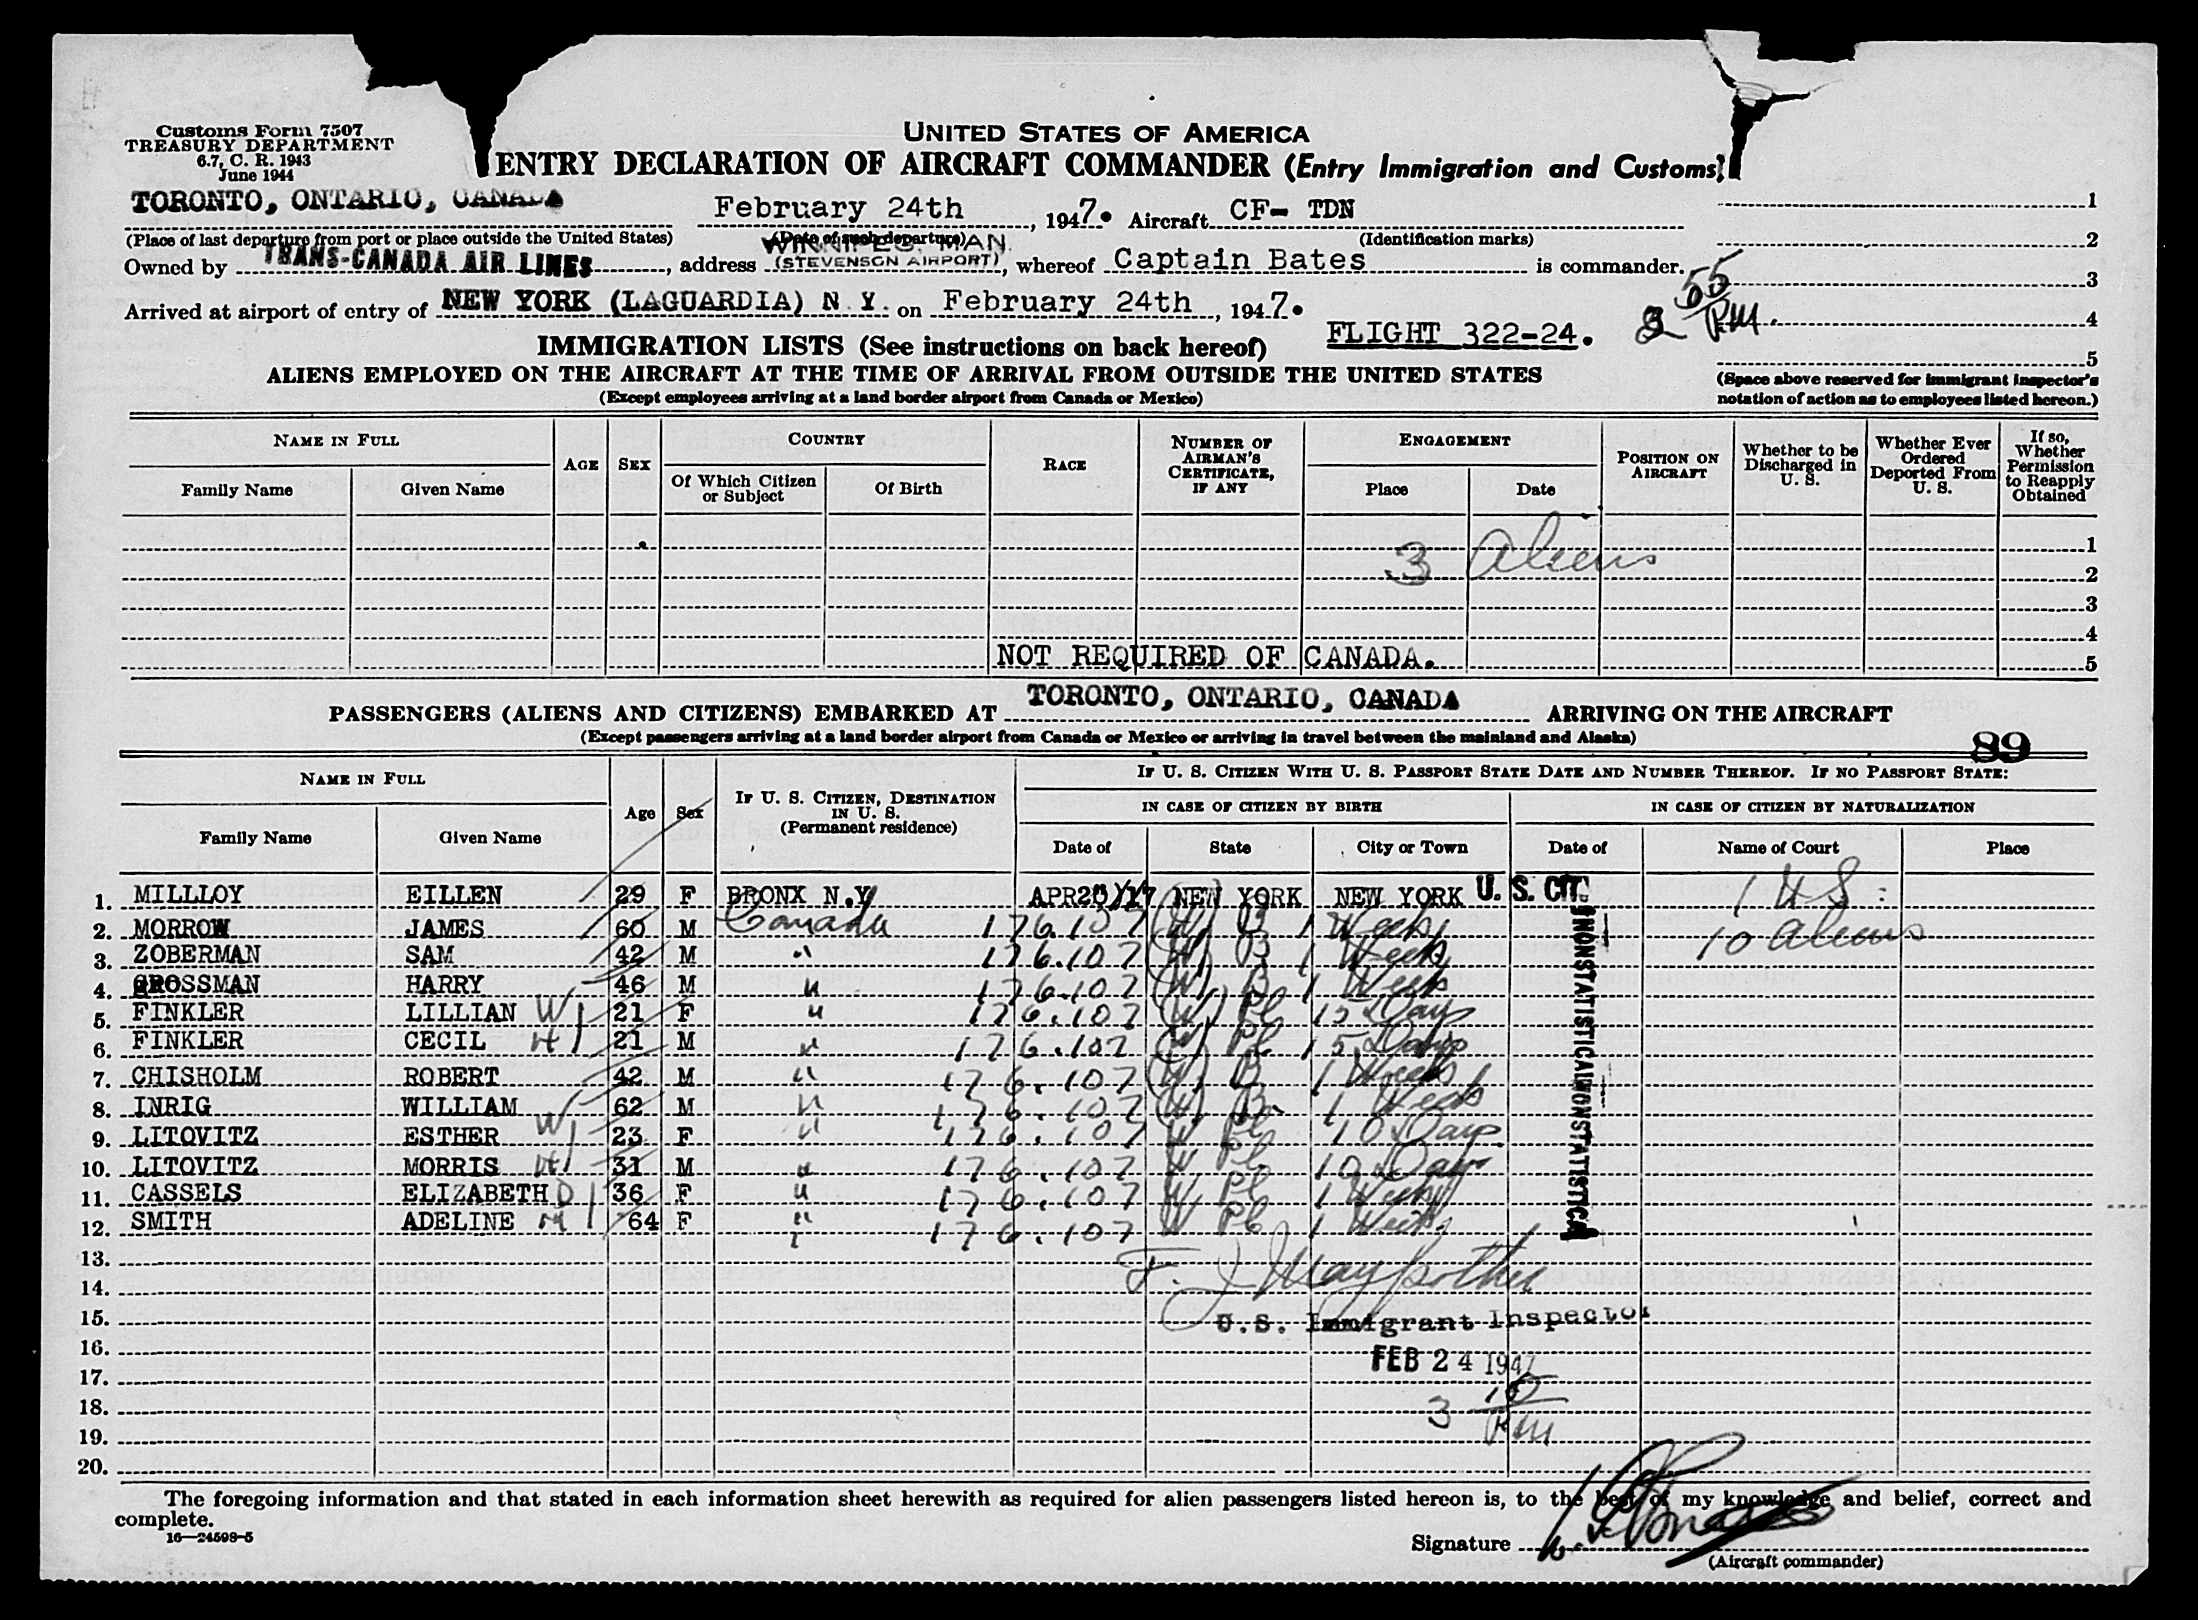 Customs Form 7507
TREASURY DEPARTMENT
6.7, C. R. 1943
June 1944
UNITED STATES OF AMERICA
ENTRY DECLARATION OF AIRCRAFT COMMANDER (Entry Immigration and Customs)
TORONTO, ONTARIO, CANADA February 24th, 1947. Aircraft CF- TDN 1
(Place of last departure from port or place outside the United States) (Date of such departure) (Identification marks) 2
WINNIPEG, MAN.
Owned by TRANS-CANADA AIR LINES, address (STEVENSON AIRPORT), whereof Captain Bates is commander. 3
Arrived at airport of entry of NEW YORK (LAGUARDIA) N.Y. on February 24th, 1947. 4
FLIGHT 322-24. 2 55 P.M. 5
IMMIGRATION LISTS (See instructions on back hereof)
ALIENS EMPLOYED ON THE AIRCRAFT AT THE TIME OF ARRIVAL FROM OUTSIDE THE UNITED STATES
(Except employees arriving at a land border airport from Canada or Mexico)
(Space above reserved for immigrant inspector's notation of action as to employees listed hereon.)
NAME IN FULL AGE SEX COUNTRY RACE NUMBER OF AIRMAN'S CERTIFICATE, IF ANY ENGAGEMENT POSITION ON AIRCRAFT Whether to be Discharged in U. S. Whether Ever Ordered Deported From U. S. If so, Whether Permission to Reapply Obtained
Family Name Given Name Of Which Citizen or Subject Of Birth Place Date
1
3 Aliens 2
3
4
NOT REQUIRED OF CANADA. 5
PASSENGERS (ALIENS AND CITIZENS) EMBARKED AT TORONTO, ONTARIO, CANADA ARRIVING ON THE AIRCRAFT
(Except passengers arriving at a land border airport from Canada or Mexico or arriving in travel between the mainland and Alaska)
89
NAME IN FULL Age Sex IF U. S. CITIZEN, DESTINATION IN U. S. (Permanent residence) IF U. S. CITIZEN WITH U. S. PASSPORT STATE DATE AND NUMBER THEREOF. IF NO PASSPORT STATE:
IN CASE OF CITIZEN BY BIRTH IN CASE OF CITIZEN BY NATURALIZATION
Family Name Given Name Date of State City or Town Date of Name of Court Place
1. MILLLOY EILLEN 29 F BRONX N.Y NEW YORK NEW YORK U. S. CIT.
2. MORROW JAMES 60 M Canada 176.107 (W) B 1 Week 10 Aliens
3. ZOBERMAN SAM 42 M " 176.107 (W) B 1 Week
4. GROSSMAN HARRY 46 M " 176.107 (W) B 1 Week
5. FINKLER LILLIAN W 21 F " 176.107 (W) Pl 15 Days
6. FINKLER CECIL H 21 M " 176.107 (W) Pl 15 Days
7. CHISHOLM ROBERT 42 M " 176.107 (W) B 1 Week
8. INRIG WILLIAM 62 M " 176.107 (W) B. 1 Week
9. LITOVITZ ESTHER W 23 F " 176.107 W Pl 10 Days
10. LITOVITZ MORRIS H 31 M " 176.107 W Pl 10 Days
11. CASSELS ELIZABETH D 36 F " 176.107 W Pl 1 Week
12. SMITH ADELINE M 64 F " 176.107 W Pl 1 Week
NONSTATISTICAL
NONSTATISTICAL
13.
14.
15. U.S. Immigrant Inspector
16. FEB 24 1947
17.
18. 3 10 PM
19.
20.
The foregoing information and that stated in each information sheet herewith as required for alien passengers listed hereon is, to the best of my knowledge and belief, correct and
complete.
16—24598-5
Signature
(Aircraft commander)